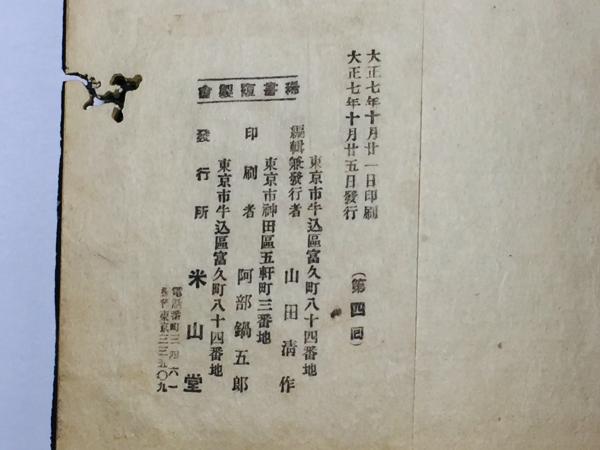 大正七年十月廿一日印刷
大正七年十月廿五日發行
(第四回)
稀書複製會
東京市牛込區富久町八十四番地
編輯兼發行者 山田淸作
東京市神田區五軒町三番地
印刷者 阿部鍋五郎
東京市牛込區富久町八十四番地
發行所 米山堂
電話番町三四六一
東京三三五〇九